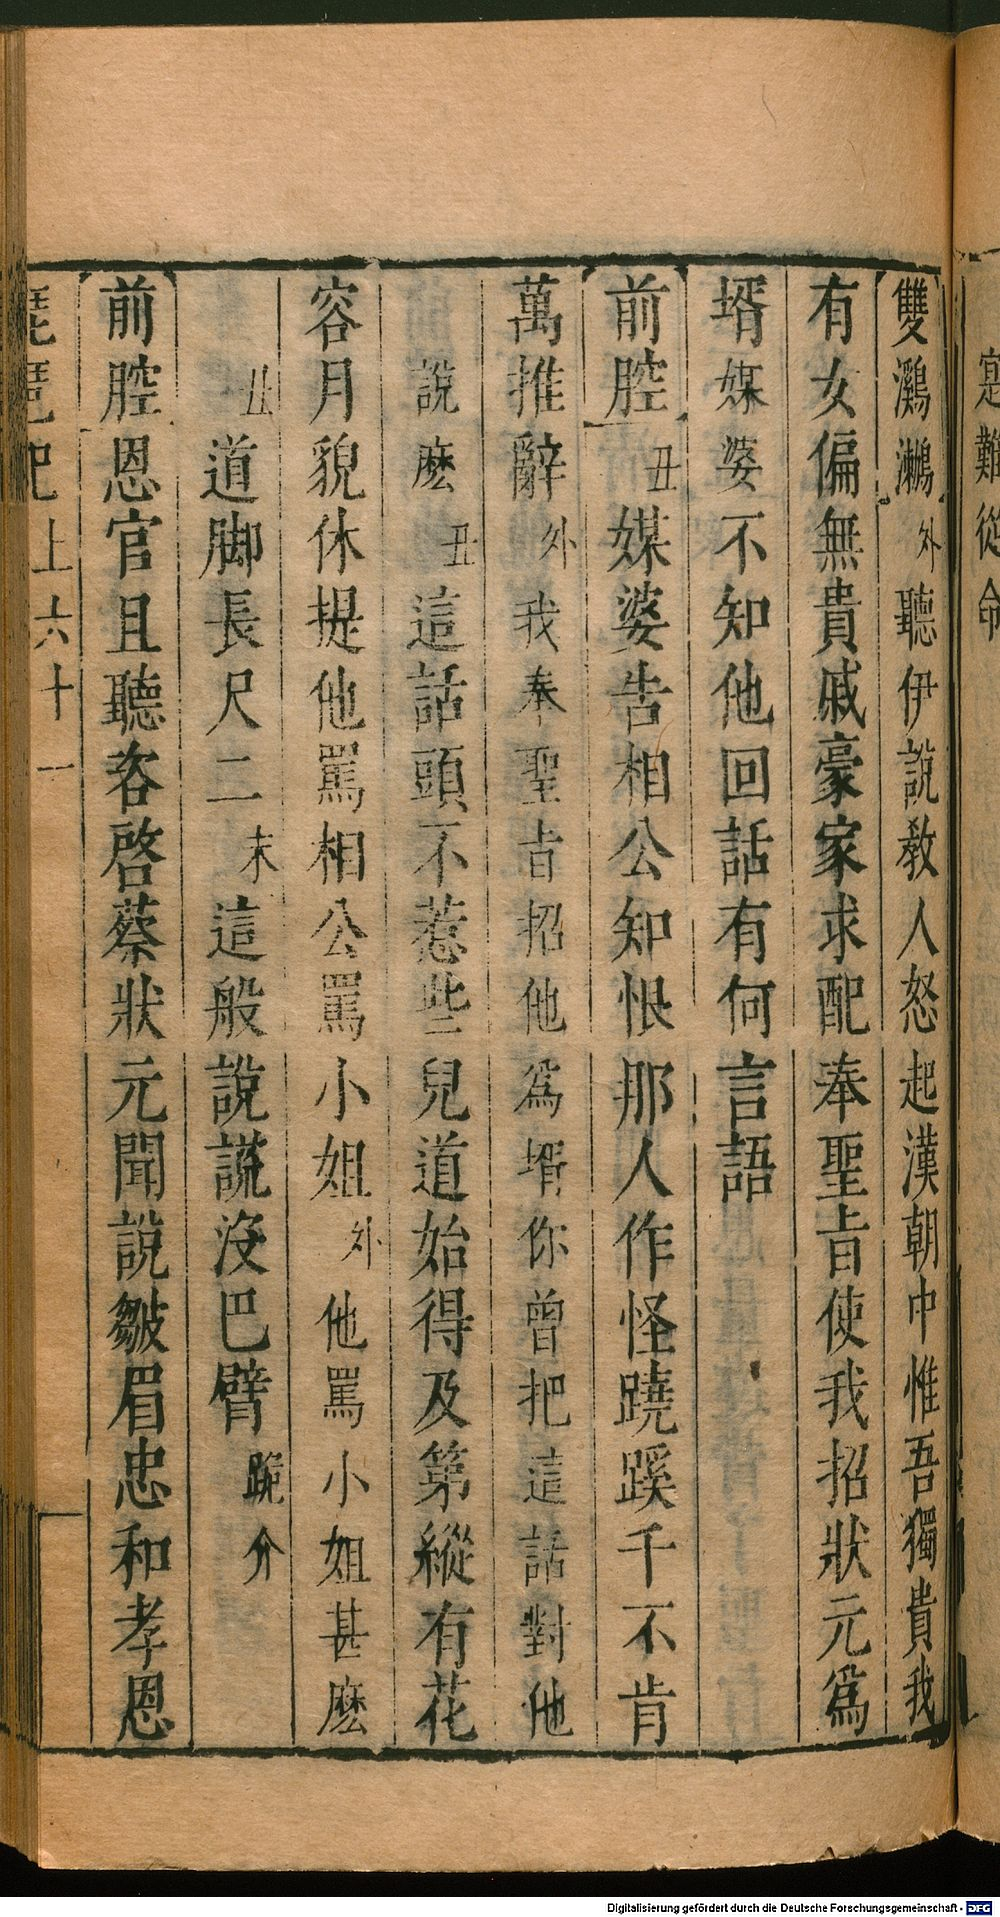 寔難從命
雙鸂鶒外聽伊說教人怒起漢朝中惟吾獨貴我
有女偏無貴戚豪家求配奉聖旨使我招狀元爲
壻媒婆不知他回話有何言語
前腔丑媒婆告相公知恨那人作怪蹺蹊千不肯
萬推辭外我奉聖旨招他爲壻你曾把這話對他
說麽丑這話頭不惹些兒道始得及第縱有花
容月貌休提他罵相公罵小姐外他罵小姐甚麽
丑道脚長尺二末這般說謊沒巴臂跪介
前腔恩官且聽咨啓蔡狀元聞說皺眉忠和孝恩
琵琶記上六十一
Digitalisierung gefördert durch die Deutsche Forschungsgemeinschaft - DFG